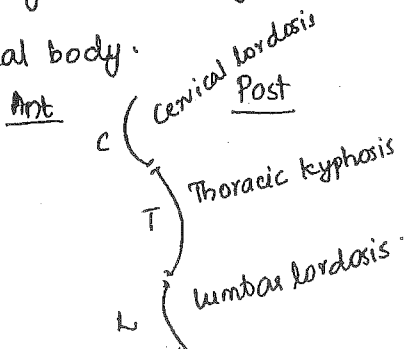 al body.
Ant
Post
Cervical lordosis
C
Thoracic kyphosis
T
Lumbar lordosis.
L